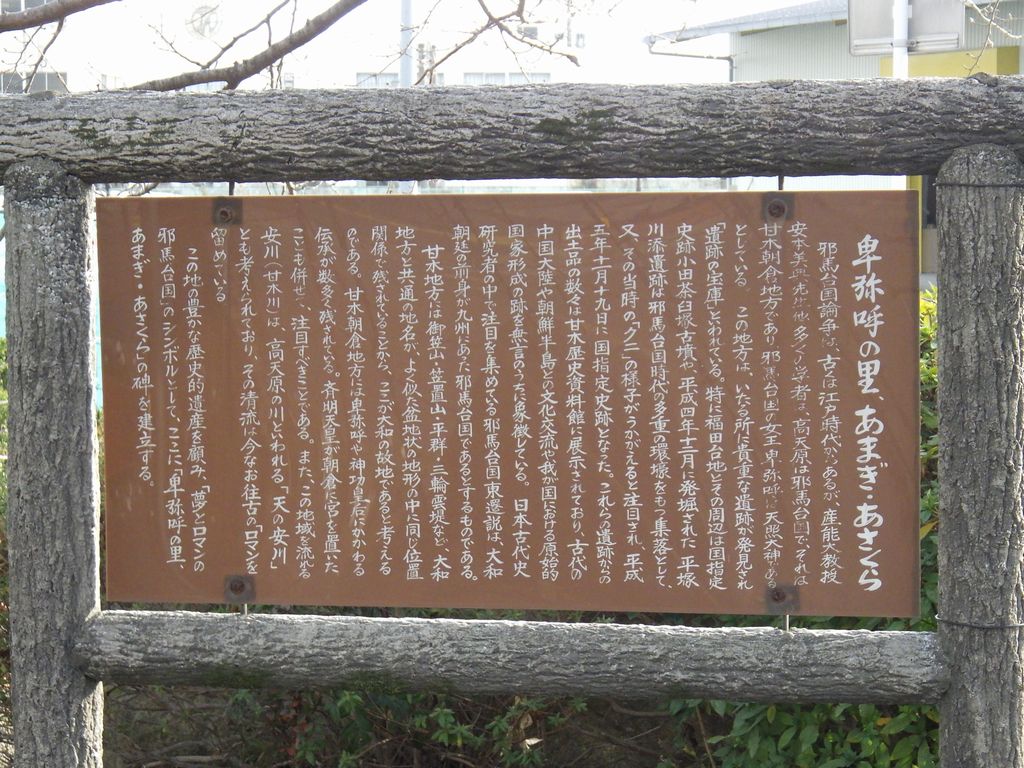 卑弥呼の里、あまぎ・あさくら
邪馬台国論争は、古くは江戸時代からあるが、産能大教授
安本美典先生他多くの学者は、高天原は邪馬台国で、それは
甘木朝倉地方であり邪馬台国の女王卑弥呼は天照大神である
としている。この地方は、いたる所に貴重な遺跡が発見され
「遺跡の宝庫」といわれている。特に福田台地とその周辺は国指定
史跡小田茶臼塚古墳や、平成四年十二月に発掘された「平塚
川添遺跡は邪馬台国時代の多重の環壕をもつ集落として、
又、その当時の「クニ」の様子がうかがえると注目され、平成
五年十二月十九日に国指定史跡となった。これらの遺跡からの
出土品の数々は甘木歴史資料館に展示されており、古代の
中国大陸や朝鮮半島との文化交流や我が国における原始的
国家形成の跡を無言のうちに象徴している。日本古代史
研究者の中で注目を集めている邪馬台国東遷説は、大和
朝廷の前身が九州にあった邪馬台国であるとするものである。
甘木地方には御笠山、笠置山、平群、三輪、雲堤など、大和
地方と共通の地名が、よく似た盆地状の地形の中に同じ位置
関係で残されていることから、ここが大和の故地であると考える
のである。甘木朝倉地方には卑弥呼や神功皇后にかかわる
伝承が数多く残されている。斉明天皇が朝倉に宮を置いた
ことも併せて、注目すべきことである。また、この地域を流れる
安川(甘木川)は、高天原の川といわれる「天の安川」
とも考えられており、その清流に今なお往古の「ロマン」を
留めている
この地の豊かな歴史的遺産を顧み、夢とロマンの
邪馬台国のシンボルとして、ここに「卑弥呼の里、
あまぎ・あさくら」の碑を建立する。